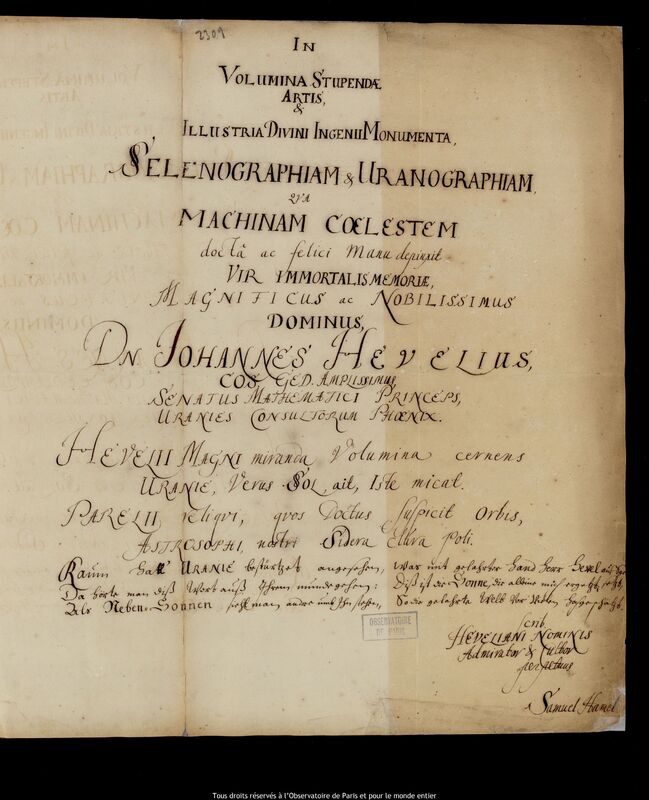 2309
IN
VOLUMINA STUPENDÆ
ARTIS,
&
ILLUSTRIA DIVINI INGENII MONUMENTA,
SELENOGRAPHIAM & URANOGRAPHIAM,
QVA
MACHINAM CŒLESTEM
doctâ ac felici Manu depinxit
VIR IMMORTALIS MEMORIÆ,
MAGNIFICUS ac NOBILISSIMUS
DOMINUS,
DN. JOHANNES HEVELIUS,
COS. GED. AMPLISSIMUS,
SENATUS MATHEMATICI PRINCEPS,
URANIES CONSULTORUM PHŒNIX.
HEVELII MAGNI miranda Volumina cernens
URANIE, Verus SOL, ait, Iste micat.
PARELII reliqvi, qvos Doctus suspicit Orbis,
ASTROSOPHI, nostri Sidera Poli.
Kaum hatt URANIE bestürtzt angesehen, Was mit gelehrter Hand Herr Hevel
Da hörte man diß Wort auß Ihrem munde gehen: Diß ist die Sonne, die alleine
Als Neben-Sonnen sieht man andre umb Ihn stehen, So die gelehrte Welt
OBSERVATOIRE
DE PARIS
scrib.
HEVELIANI NOMINIS
Admirator & Cultor
perpetuus
Samuel Hamel
Tous droits réservés à l'Observatoire de Paris et pour le monde entier